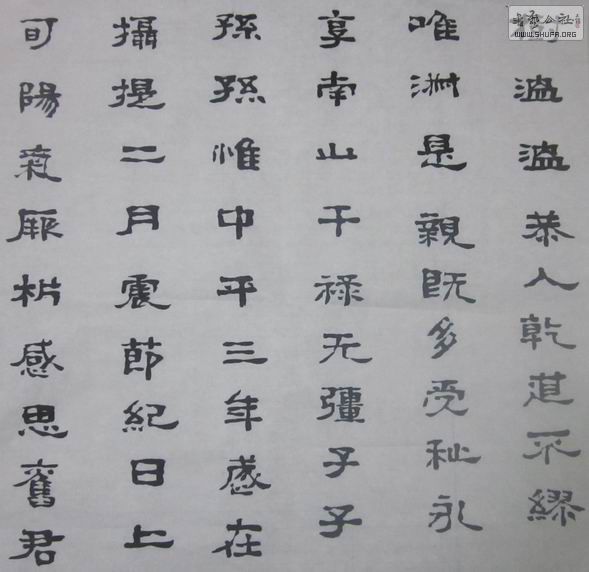 溫溫恭人乾道不繆
唯淑是親既多受祉永
享南山干祿无彊子子
孫孫惟中平三年歲在
攝提二月震節紀日上
旬陽氣厥析感思舊君
公社
WWW.SHUFA.ORG